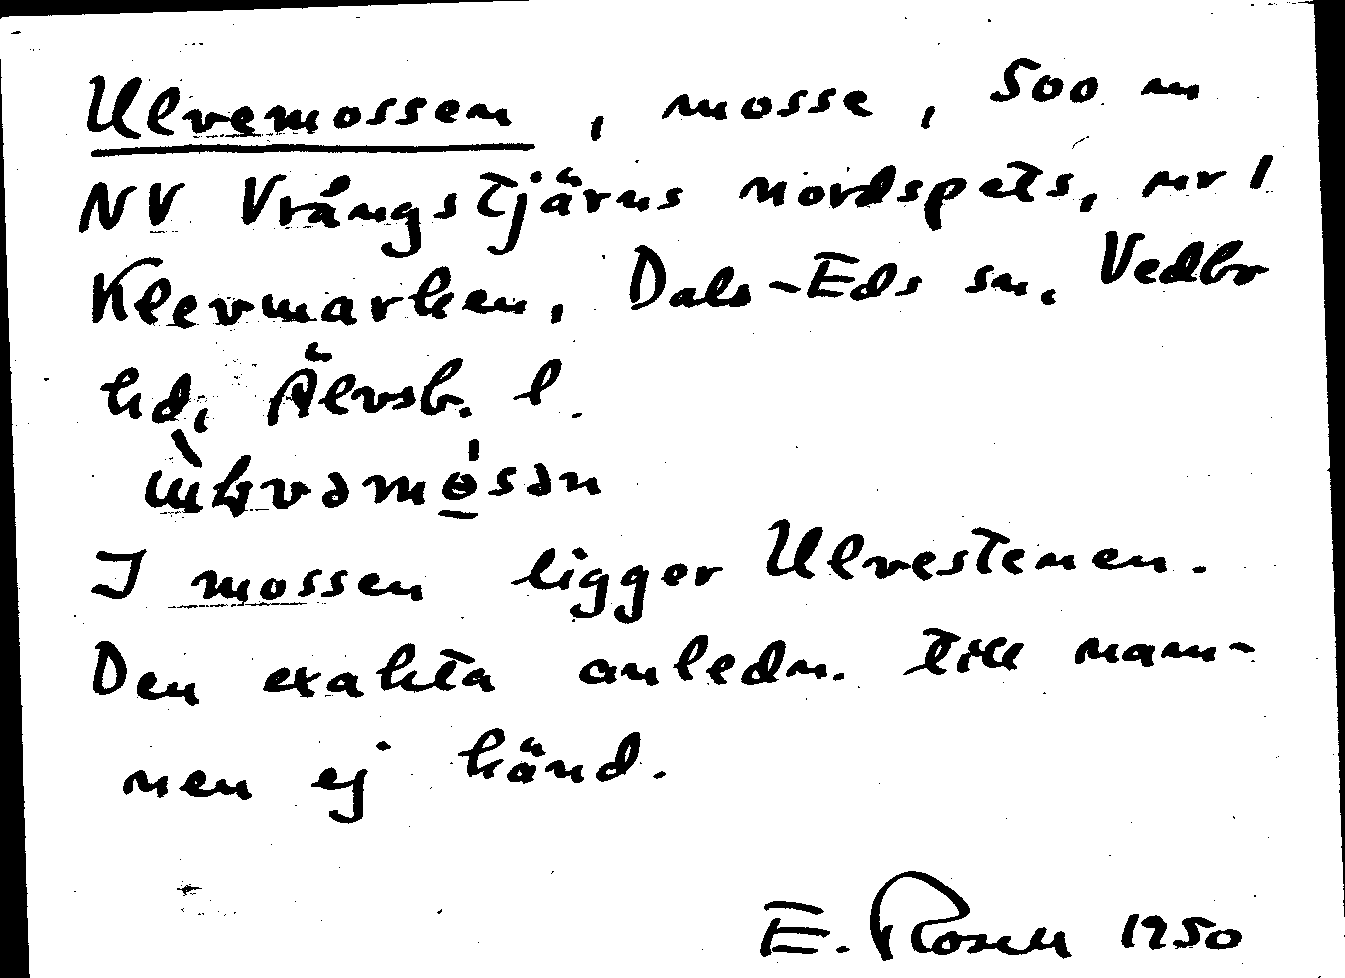 Ulvemossen, mosse, 500 m
NV Vrångstjärns nordspets, nr 1
Klevmarken, Dals-Eds sn, Vedbo
hd, Älvsb. l.
I mossen ligger Ulvestenen.
Den exakta anledn. till nam-
nen ej känd.
E. Rosell 1950